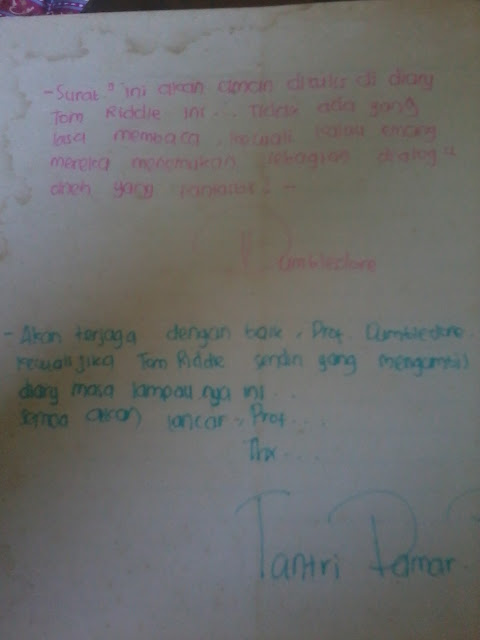 - Surat" ini akan aman ditulis di diary
Tom Riddle ini... Tidak ada yang
bisa membaca, kecuali kalau emang
mereka menemukan sebagian dialog"
aneh yang fantastis! -
Dumbledore
- Akan terjaga dengan baik, Prof. Dumbledore.
kecuali jika Tom Riddle sendiri yang mengambil
diary masa lampau nya ini...
semoa akan lancar, Prof....
Thx....
Tantri Damar